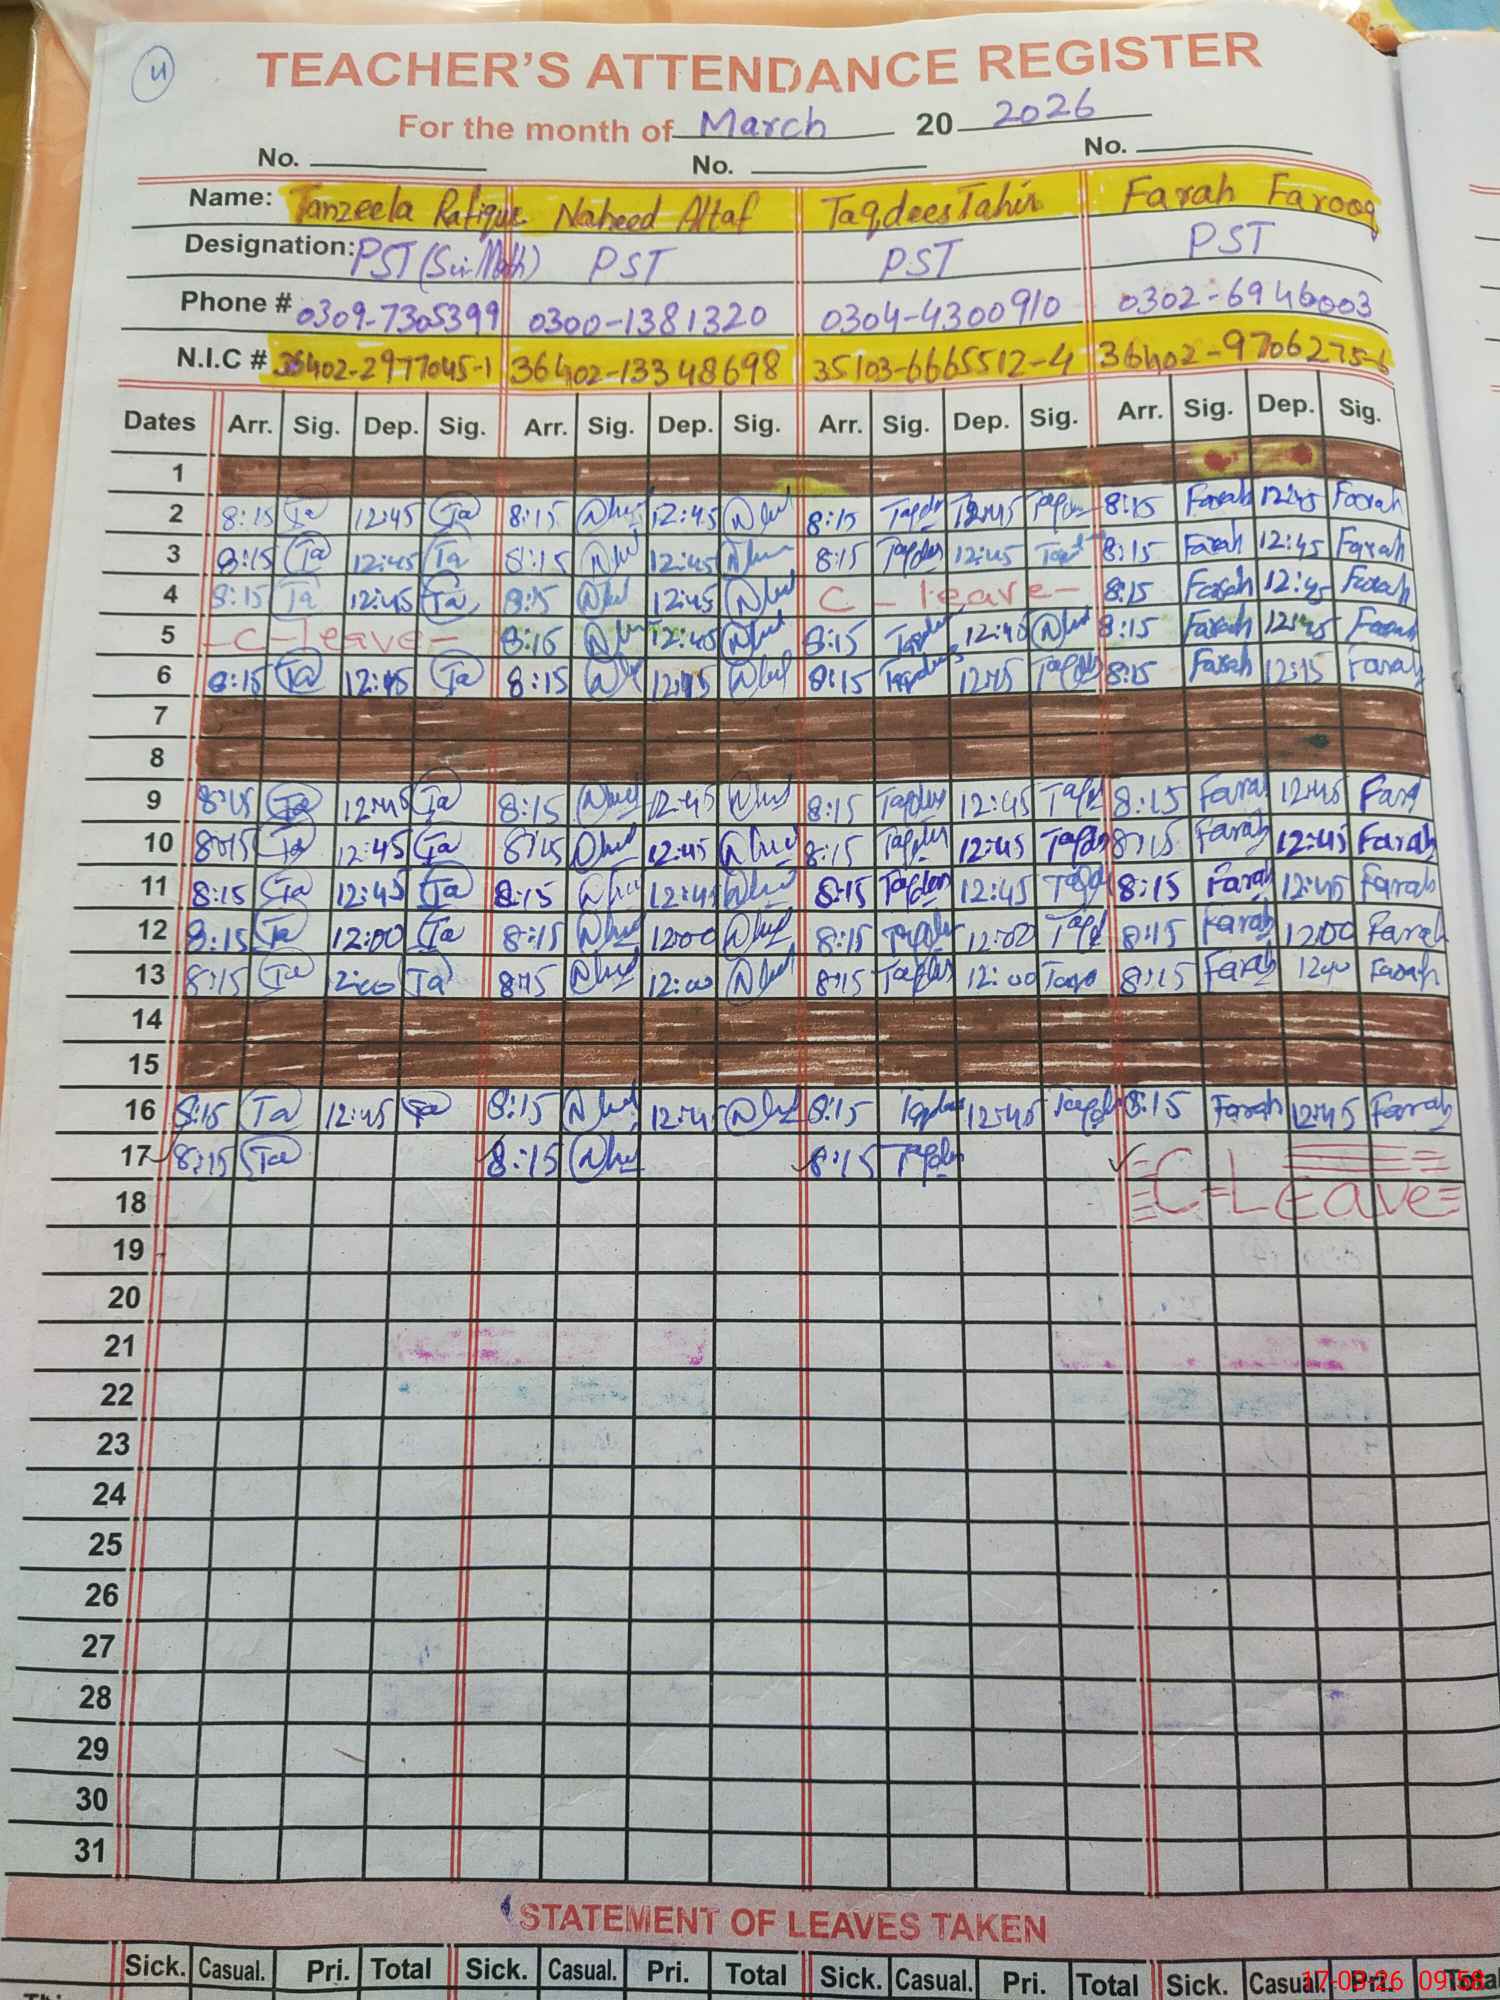 4
TEACHER'S ATTENDANCE REGISTER
For the month of March 20 2026
No. No. No.
Name: Tanzeela Rafique Naheed Altaf Taqdees Tahir Farah Farooq
Designation: PST (Sci-Math) PST PST PST
Phone # 0309-7305399 0300-1381320 0304-4300910 0302-6946003
N.I.C # 36402-2977045-1 36402-13348698 35103-6665512-4 36402-9706275-6
Dates Arr. Sig. Dep. Sig. Arr. Sig. Dep. Sig. Arr. Sig. Dep. Sig. Arr. Sig. Dep. Sig.
1
2 8:15 Ta 12:45 Ta 8:15 12:45 8:15 12:45 8:15 Farah 12:45 Farah
3 8:15 Ta 12:45 Ta 8:15 12:45 8:15 12:45 8:15 Farah 12:45 Farah
4 8:15 Ta 12:45 Ta 8:15 12:45 C - leave - 8:15 Farah 12:45 Farah
5 - C - leave - 8:15 12:45 8:15 12:45 8:15 Farah 12:45 Farah
6 8:15 Ta 12:45 Ta 8:15 12:45 8:15 12:45 8:15 Farah 12:45 Farah
7
8
9 8:15 Ta 12:45 Ta 8:15 12:45 8:15 12:45 8:15 Farah 12:45 Farah
10 8:15 Ta 12:45 Ta 8:15 12:45 8:15 12:45 8:15 Farah 12:45 Farah
11 8:15 Ta 12:45 Ta 8:15 12:45 8:15 12:45 8:15 Farah 12:45 Farah
12 8:15 Ta 12:00 Ta 8:15 12:00 8:15 12:00 8:15 Farah 12:00 Farah
13 8:15 Ta 12:00 Ta 8:15 12:00 8:15 12:00 8:15 Farah 12:00 Farah
14
15
16 8:15 Ta 12:45 Ta 8:15 12:45 8:15 12:45 8:15 Farah 12:45 Farah
17 8:15 Ta 8:15 8:15 C-Leave
18
19
20
21
22
23
24
25
26
27
28
29
30
31
STATEMENT OF LEAVES TAKEN
Sick. Casual. Pri. Total Sick. Casual. Pri. Total Sick. Casual. Pri. Total Sick. Casual. Pri. Total
17-03-26 09:58